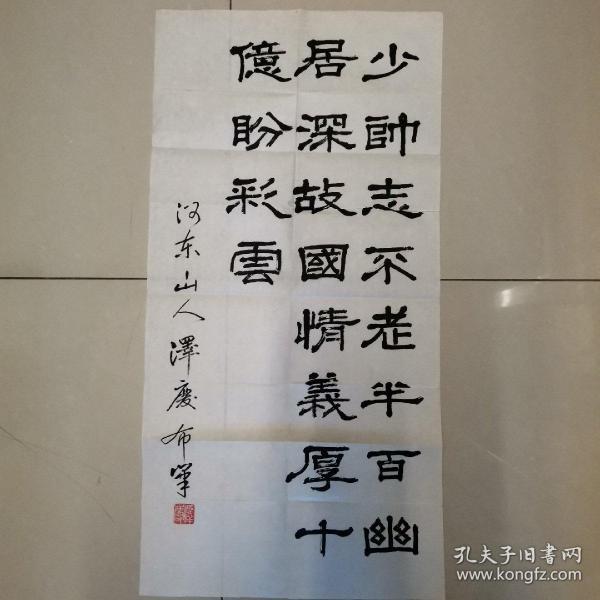 少帥志不老半百幽
居深故國情義厚十
億盼彩雲
河东山人澤慶布筆
孔夫子旧書网
www.kongfz.com